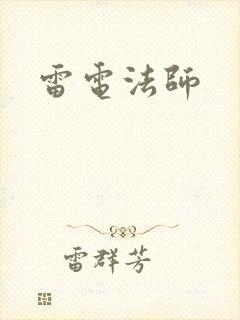 雷電法師
雷群芳